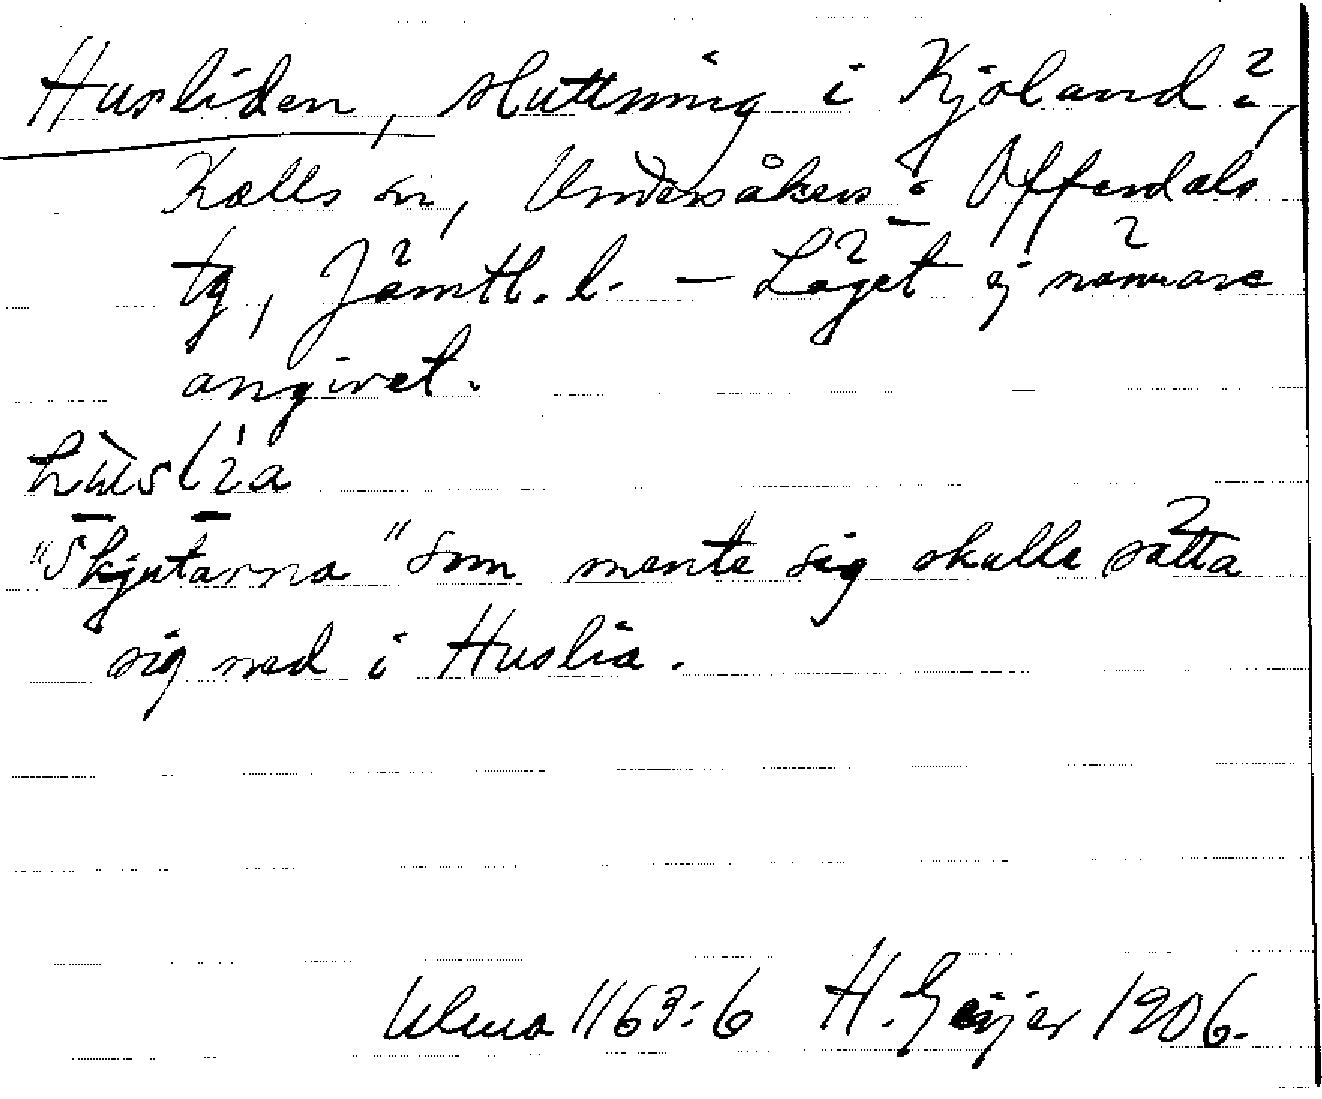 Husliden, sluttning i Kjoland?,
Kalls sn, Undersåkers o Offerdals
tg, Jämtl. l. – Läget ej närmare
angivet.
hùslía
"Skjutarna" som mente sig skulle sätta
sig ned i Huslia.
Ulma 1163:6 H. Geijer 1906.